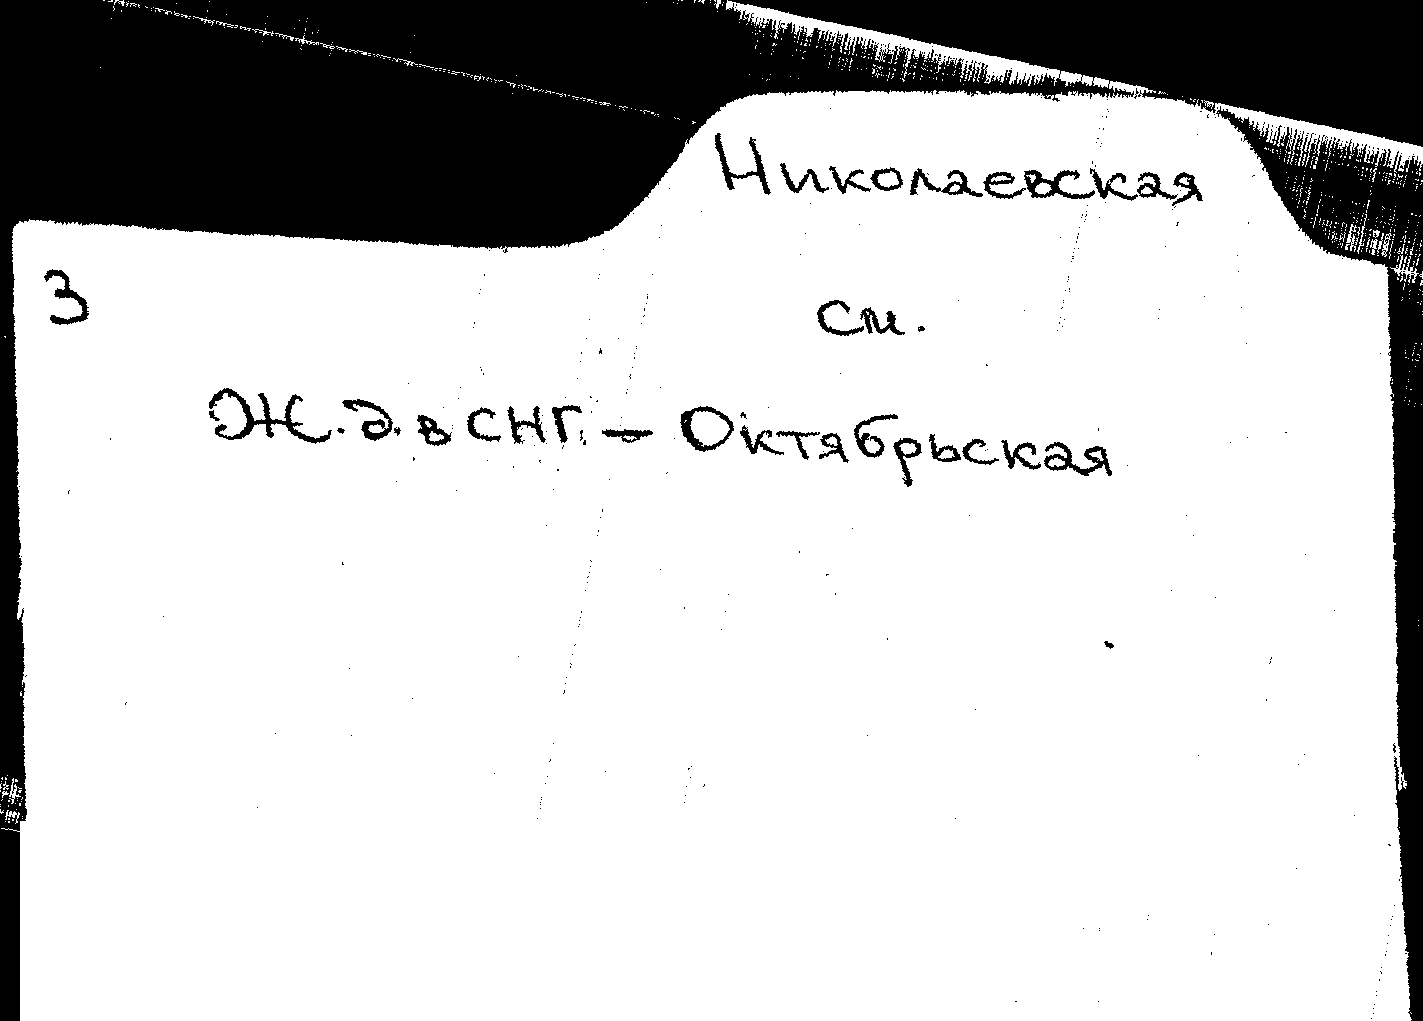 Николаевская
3
см.
Ж.д. в СНГ. — Октябрьская